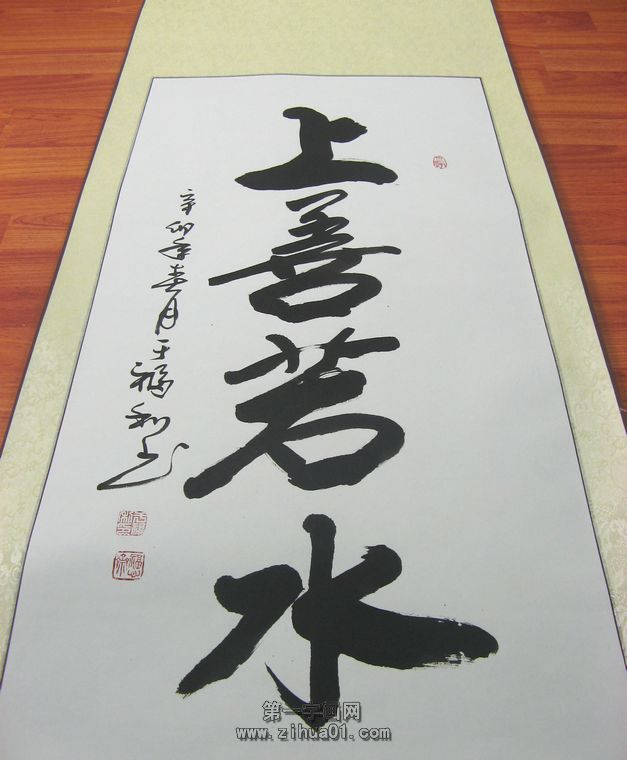 上善若水
辛卯年春月王福利书
第一字画网
www.zihua01.com